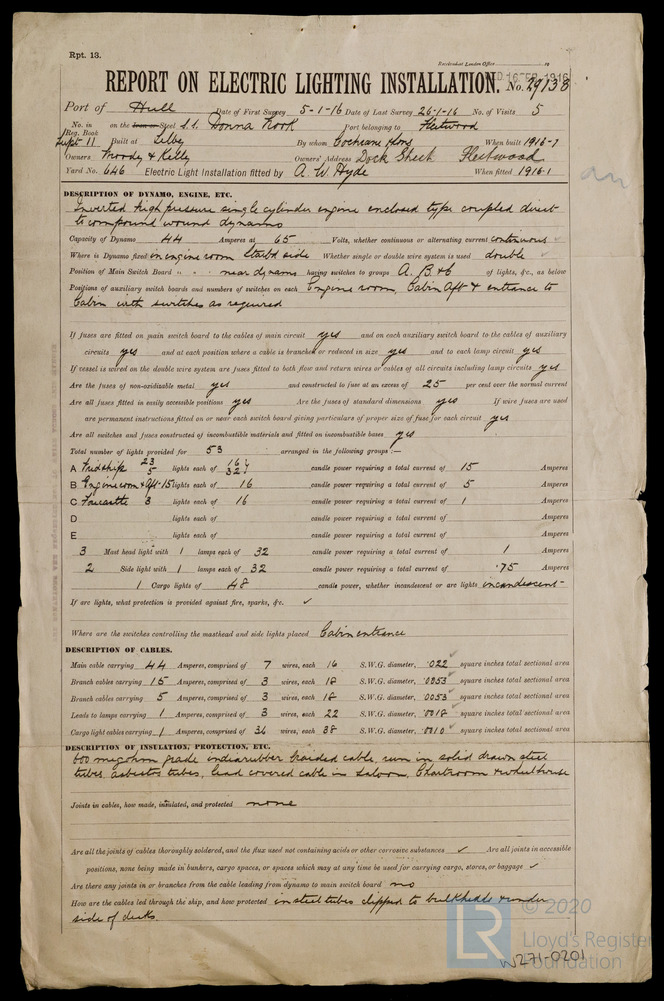 Rpt. 13.
Received at London Office 19
16 FEB 1916
REPORT ON ELECTRIC LIGHTING INSTALLATION. No. 29138
Port of Hull Date of First Survey 5-1-16 Date of Last Survey 26-1-16 No. of Visits 5
No. in Reg. Book Supt 11 on the Iron or Steel S.S. Donna Nook Port belonging to Fleetwood
Built at Selby By whom Cochrane & Sons When built 1916-1
Owners Moody & Kelly Owners' Address Dock Street Fleetwood
Yard No. 646 Electric Light Installation fitted by A. W. Hyde When fitted 1916.1
DESCRIPTION OF DYNAMO, ENGINE, ETC.
Inverted high pressure single cylinder engine enclosed type coupled direct
to compound wound dynamo
Capacity of Dynamo 44 Amperes at 65 Volts, whether continuous or alternating current continuous
Where is Dynamo fixed in engine room Starb'd side Whether single or double wire system is used double
Position of Main Switch Board near dynamo having switches to groups A. B. & C of lights, &c., as below
Positions of auxiliary switch boards and numbers of switches on each Engine room, Cabin Aft & entrance to
Cabin with switches as required
If fuses are fitted on main switch board to the cables of main circuit yes and on each auxiliary switch board to the cables of auxiliary
circuits yes and at each position where a cable is branched or reduced in size yes and to each lamp circuit yes
If vessel is wired on the double wire system are fuses fitted to both flow and return wires or cables of all circuits including lamp circuits yes
Are the fuses of non-oxidizable metal yes and constructed to fuse at an excess of 25 per cent over the normal current
Are all fuses fitted in easily accessible positions yes Are the fuses of standard dimensions yes If wire fuses are used
are permanent instructions fitted on or near each switch board giving particulars of proper size of fuse for each circuit yes
Are all switches and fuses constructed of incombustible materials and fitted on incombustible bases yes
Total number of lights provided for 53 arranged in the following groups :—
A Midships 23 5 lights each of 16 32 candle power requiring a total current of 15 Amperes
B Engineroom & Aft 15 lights each of 16 candle power requiring a total current of 5 Amperes
C Forcastle 3 lights each of 16 candle power requiring a total current of 1 Amperes
D lights each of candle power requiring a total current of Amperes
E lights each of candle power requiring a total current of Amperes
3 Mast head light with 1 lamps each of 32 candle power requiring a total current of 1 Amperes
2 Side light with 1 lamps each of 32 candle power requiring a total current of .75 Amperes
1 Cargo lights of 48 candle power, whether incandescent or arc lights incandescent
If arc lights, what protection is provided against fire, sparks, &c. ✓
Where are the switches controlling the masthead and side lights placed Cabin entrance
DESCRIPTION OF CABLES.
Main cable carrying 44 Amperes, comprised of 7 wires, each 16 S.W.G. diameter, .022 square inches total sectional area
Branch cables carrying 15 Amperes, comprised of 3 wires, each 18 S.W.G. diameter, .0053 square inches total sectional area
Branch cables carrying 5 Amperes, comprised of 3 wires, each 18 S.W.G. diameter, .0053 square inches total sectional area
Leads to lamps carrying 1 Amperes, comprised of 3 wires, each 22 S.W.G. diameter, .0018 square inches total sectional area
Cargo light cables carrying 1 Amperes, comprised of 34 wires, each 38 S.W.G. diameter, .0010 square inches total sectional area
DESCRIPTION OF INSULATION, PROTECTION, ETC.
600 megohm grade indiarubber braided cable, run in solid drawn steel
tubes, asbestos tubes, lead covered cable in saloon, Chartroom & wheelhouse
Joints in cables, how made, insulated, and protected none
Are all the joints of cables thoroughly soldered, and the flux used not containing acids or other corrosive substances ✓ Are all joints in accessible
positions, none being made in bunkers, cargo spaces, or spaces which may at any time be used for carrying cargo, stores, or baggage ✓
Are there any joints in or branches from the cable leading from dynamo to main switch board no
How are the cables led through the ship, and how protected in steel tubes clipped to bulkheads & under
side of decks.
LR © 2020
Lloyd's Register
Foundation
W271-0201